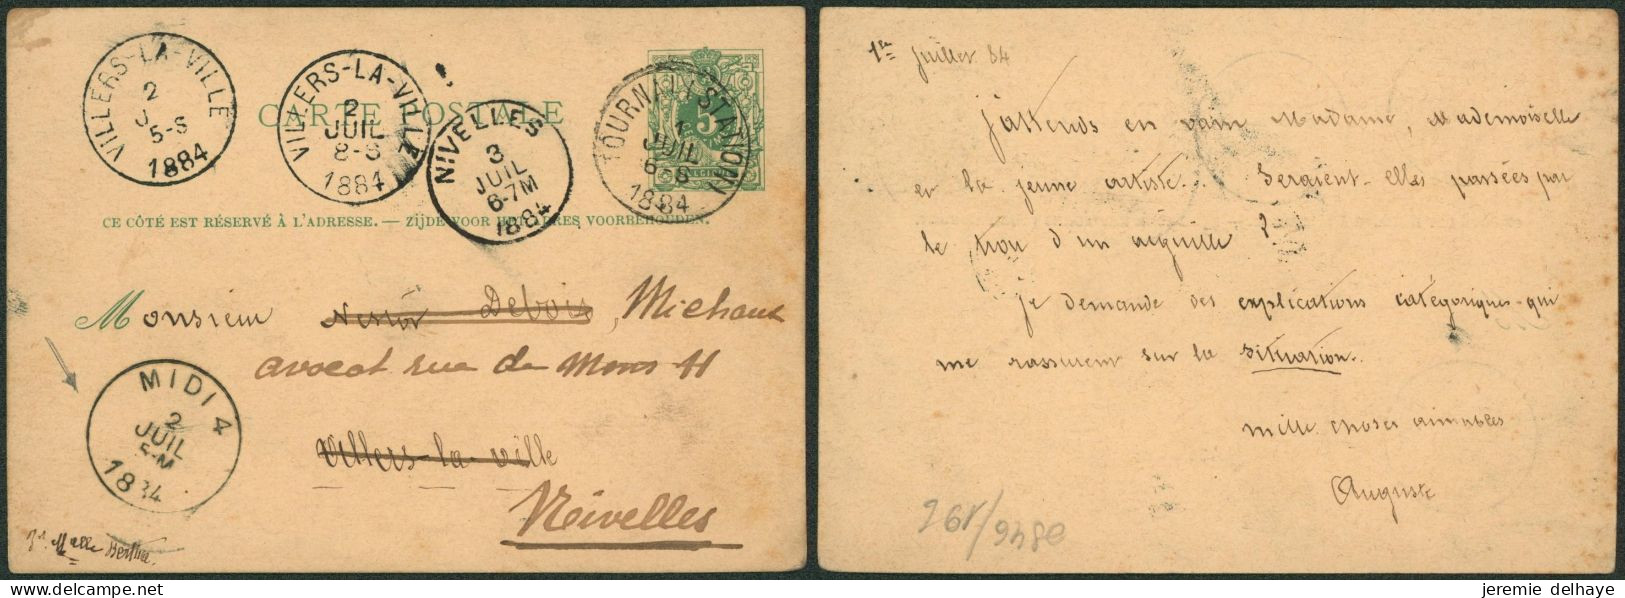 VILLERS-LA-VILLE
2
5-S
1884
VILLERS-LA-VILLE
2
JUIL
8-S
1884
CARTE POSTALE
NIVELLES
3
JUIL
6-7M
1884
TOURNAI (STATION)
1
JUIL
6-S
1884
5
CE CÔTÉ EST RÉSERVÉ À L'ADRESSE. — ZIJDE VOOR HET ADRES VOORBEHOUDEN.
Monsieur Nestor Debois, Michaux
avocat rue de Mons 11
Villers-la-ville
Nivelles
MIDI 4
2
JUIL
5-M
1884
Melle
1er Juillet 84
J'attends en vain Madame, Mademoiselle
et la jeune artiste. Seraient-elles passées par
le trou d'un aiguille ?
je demande des explications catégoriques qui
me rassurent sur la situation.
mille choses aimables
Auguste
jeremie delhaye